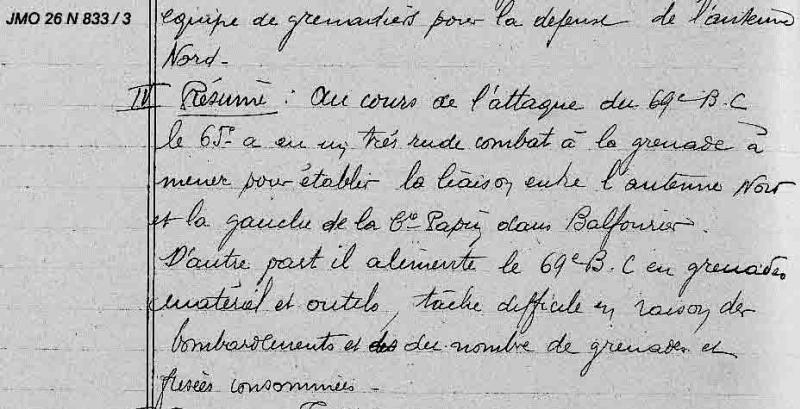 JMO 26 N 833 / 3
equipe de grenadiers pour la defense de l'antenne
Nord -
IV Résumé : Au cours de l'attaque du 69e B.C
le 65e a eu un très rude combat à la grenade à
mener pour établir la liaison entre l'antenne Nord
et la gauche de la Cie Papin dans Balfourier.
D'autre part il alimente le 69e B.C en grenades
matériel et outils, tâche difficile en raison des
bombardements et du nombre de grenades et
fusées consommées -